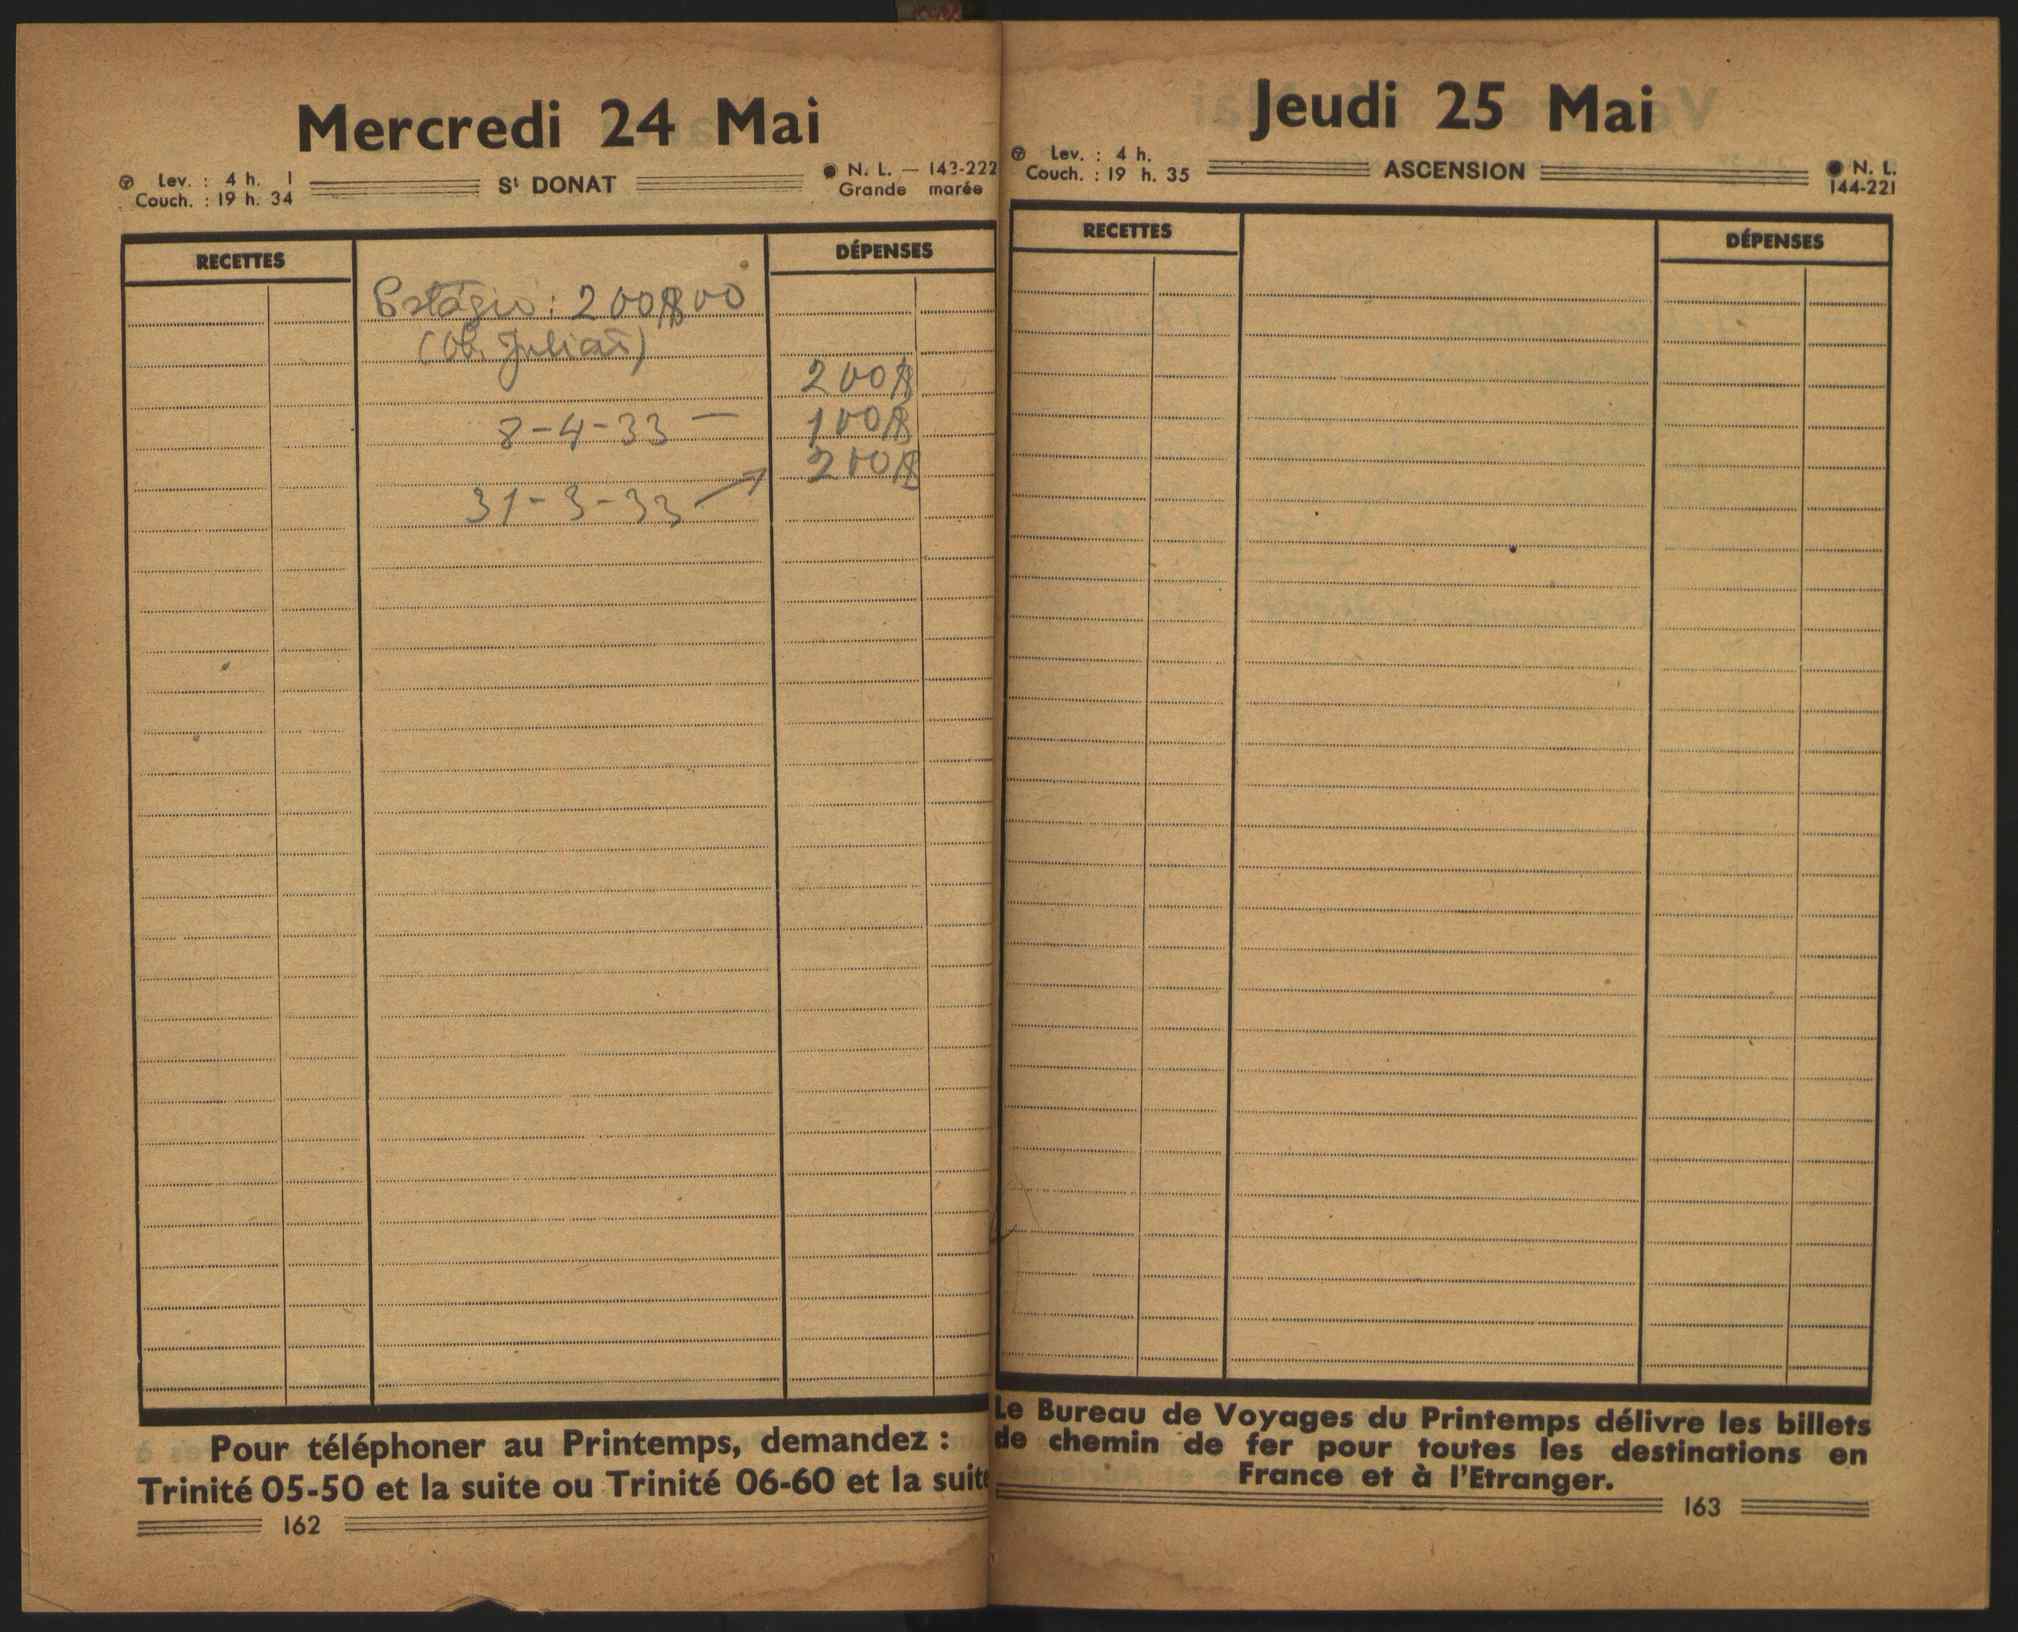 Mercredi 24 Mai
Lev. : 4 h. 1
Couch. : 19 h. 34
St DONAT
N. L. — 143-222
Grande marée
RECETTES
DÉPENSES
Estágio: 200$00
(Ob. Julião)
200$
8-4-33 — 100$
200$
31-3-33
Pour téléphoner au Printemps, demandez :
Trinité 05-50 et la suite ou Trinité 06-60 et la suite
162
Jeudi 25 Mai
Lev. : 4 h.
Couch. : 19 h. 35
ASCENSION
N. L.
144-221
RECETTES
DÉPENSES
Le Bureau de Voyages du Printemps délivre les billets
de chemin de fer pour toutes les destinations en
France et à l'Etranger.
163